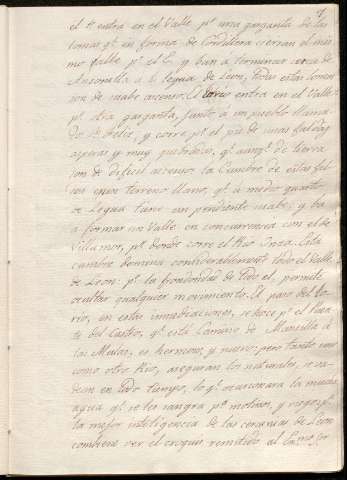 7
el qe. entra en el Valle pr. una garganta de las
lomas qe. en forma de Cordillera cierran el mis-
mo falle pr. el E. y ban a terminar cerca de
a ½ legua de Leon, todas estas lomas
son de suabe ascenso. El torio entra en el Valle
pr. otra garganta, junto á un pueblo llama-
do Sn. Feliz, y corre pr. el pie de unas faldas
asperas y muy quebradas, qe. aunqe. de tierra
son de dificil ascenso, la Cumbre de estas fal-
das es un terreno llano, qe. á medio quarto
de Legua tiene un pendiente suabe, y ba
a formar un Valle en concurrencia con el de
Villamor, pr. donde corre el Rio Onza. Esta
cumbre domina considerablemente todo el Valle
de Leon: pr. la frondosidad de todo el, permite
ocultar qualquier movimiento. El paso del to-
rio, en estas inmediaciones, se hace pr. el Puen-
te del Castro, qe. está Camino de Mansilla á
las Mulas, es hermoso, y nuevo; pero tanto uno
como otro Rio, aseguran los naturales, se va-
dean en todo tiempo, lo qe. ocasionara la mucha
agua qe. se les sangra pa. molinos, y riegos. Pa.
la mejor inteligencia de las cercanias de Leon
combiene ver el croquis remitido al Exmo. Sor.